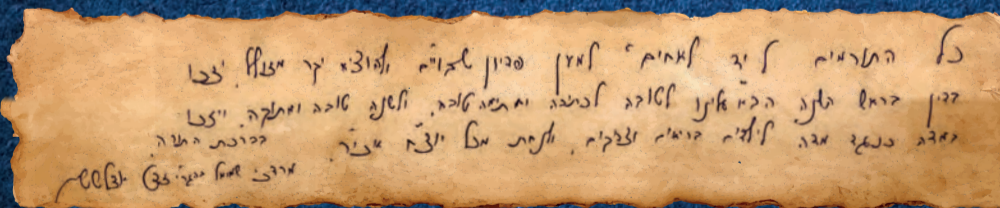 כל התורמים ל יד לאחים" למען פדיון שבויים ולהוציא יקר מזולל, יזכו
בדין בראש השנה הבא עלינו לטובה לכתיבה וחתימה טובה, ולשנה טובה ומתוקה, ויזכו
במדה כנגד מדה לילדים בריאים וצדיקים, ולנחת מכל יוצ"ח אכי"ר.
בברכת התורה,
מרדכי שמואל